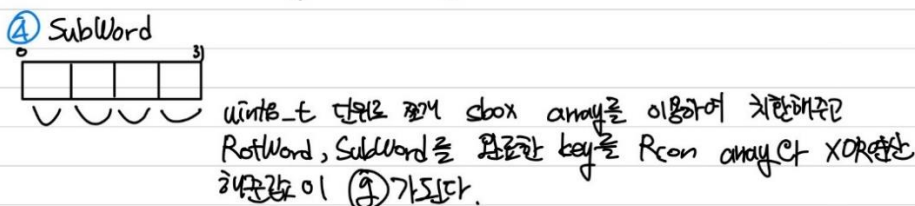 ④ SubWord
0 31
uint8_t 단위로 쪼개 sbox array를 이용하여 치환해주고
RotWord, SubWord를 완료한 key를 Rcon array와 XOR연산
해준값이 ⑨가된다.